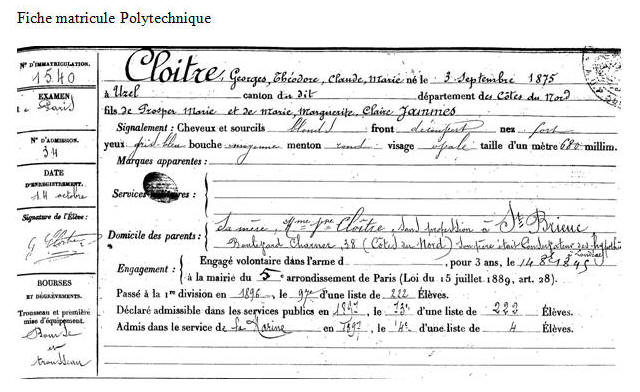 Fiche matricule Polytechnique
N° D'IMMATRICULATION.
1540
EXAMEN
de Paris
N° D'ADMISSION.
34
DATE
D'ENREGISTREMENT.
14 octobre
Signature de l'Élève :
G Cloitre
BOURSES
ET DÉGRÈVEMENTS.
Trousseau et première
mise d'équipement.
Bourse
et
trousseau
Cloître, Georges, Théodore, Claude, Marie né le 3 Septembre 1875
à Uzel canton du dit département des Côtes du Nord
fils de Prosper Marie et de Marie, Marguerite, Claire Jammes
Signalement : Cheveux et sourcils blonds front découvert nez fort
yeux gris-bleu bouche moyenne menton rond visage ovale taille d'un mètre 680 millim.
Marques apparentes :
Services militaires :
Domicile des parents :
Sa mère, Mme Vve Cloître, sans profession à St Brieuc
Boulevard Charner, 38 (Côtes du Nord) Son père était Conservateur des hypoth.
à Loudéac
Engagement :
Engagé volontaire dans l'arme d , pour 3 ans, le 14 8bre 1895
à la mairie du 5e arrondissement de Paris (Loi du 15 juillet 1889, art. 28).
Passé à la 1re division en 1896, le 97e d'une liste de 222 Élèves.
Déclaré admissible dans les services publics en 1897, le 73e d'une liste de 222 Élèves.
Admis dans le service de la Marine en 1897, le 4e d'une liste de 4 Élèves.